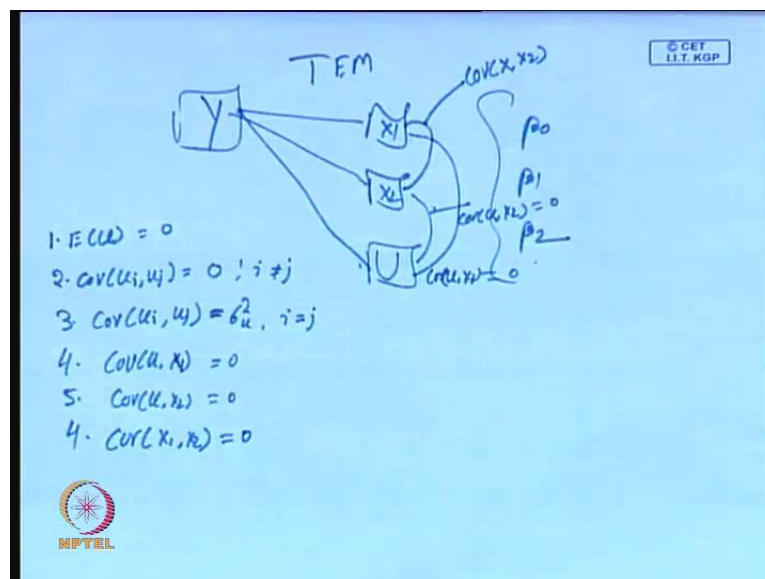 TEM
© CET
I.I.T. KGP
Cov(x1, x2)
Y
X1
β0
X2
β1
cov(u, x2) = 0
U
β2
cov(u, x1) = 0
1. E(u) = 0
2. cov(ui, uj) = 0 ! i ≠ j
3. Cov(ui, uj) = σ²u, i = j
4. Cov(u, x1) = 0
5. Cov(u, x2) = 0
4. Cov(x1, x2) = 0
NPTEL